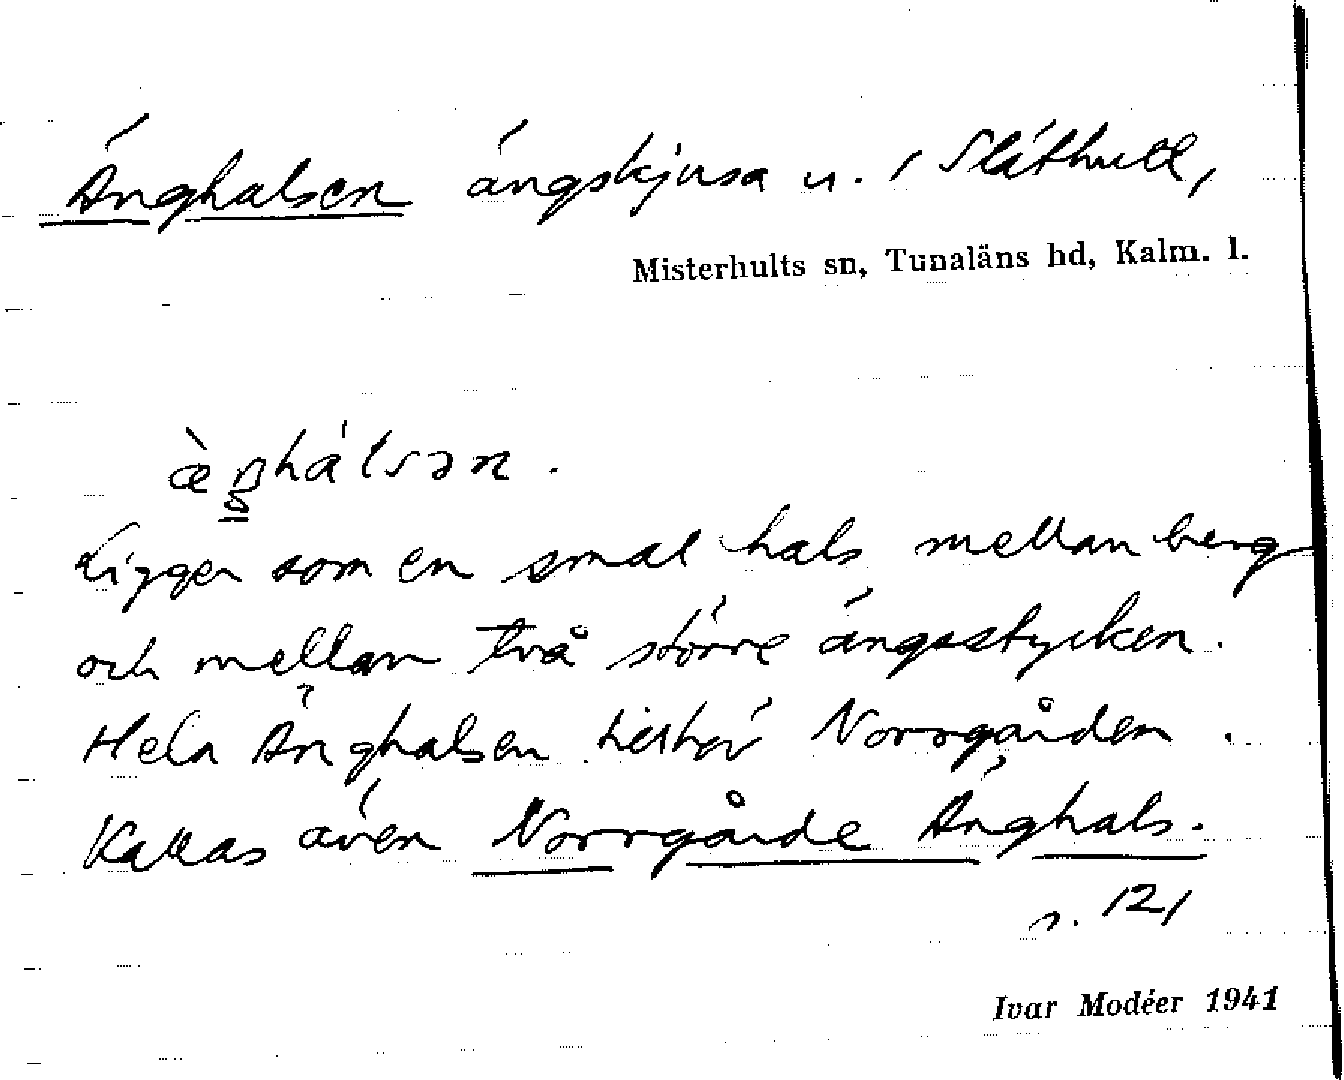 Änghalsen ängskjusa u. / Släthult,
Misterhults sn, Tunaläns hd, Kalm. l.
æ̀ŋhálsən.
Ligger som en smal hals mellan berg
och mellan två större ängsstycken.
Hela Änghalsen tillhör Norrgården.
Kallas även Norrgårde Änghals.
s. 121
Ivar Modéer 1941